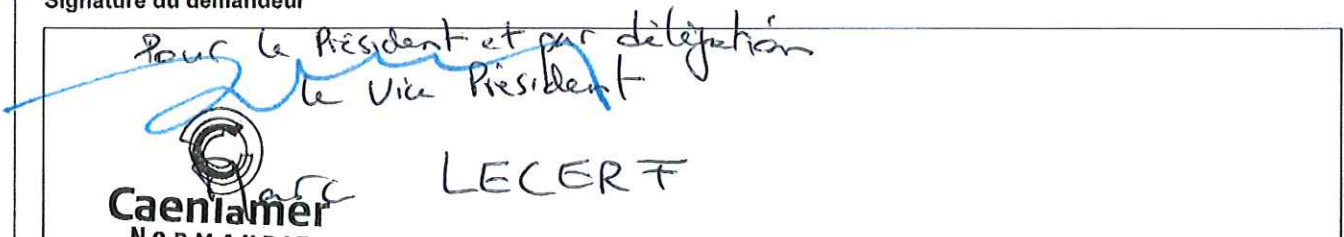 Signature du demandeur
Pour le Président et par délégation
le Vice Président
Marc LECERF
Caenlamer
NORMANDIE